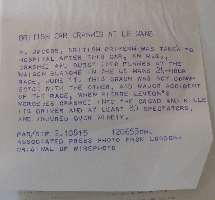 BRITISH CAR CRASHES AT LE MANS
JACOBS, BRITISH DRIVER WAS TAKEN TO
HOSPITAL AFTER THIS CAR, AN M.G.,
CRASHED AND INTO FLAMES AT THE
MAISON BLANCHE IN THE LE MANS 24-HOUR
RACE, JUNE THIS CRASH WAS NOT
WITH THE OTHER, AND MAJOR ACCIDENT
OF THE RACE, WHEN PIERRE LEVEGH'S
MERCEDES CRASHED INTO THE CROWD AND
ITS DRIVER AND AT LEAST SPECTATORS,
AND INJURED OVER NINETY.
ASSOCIATED PRESS PHOTO FROM LONDON
ORIGINAL OF WIREPHOTO